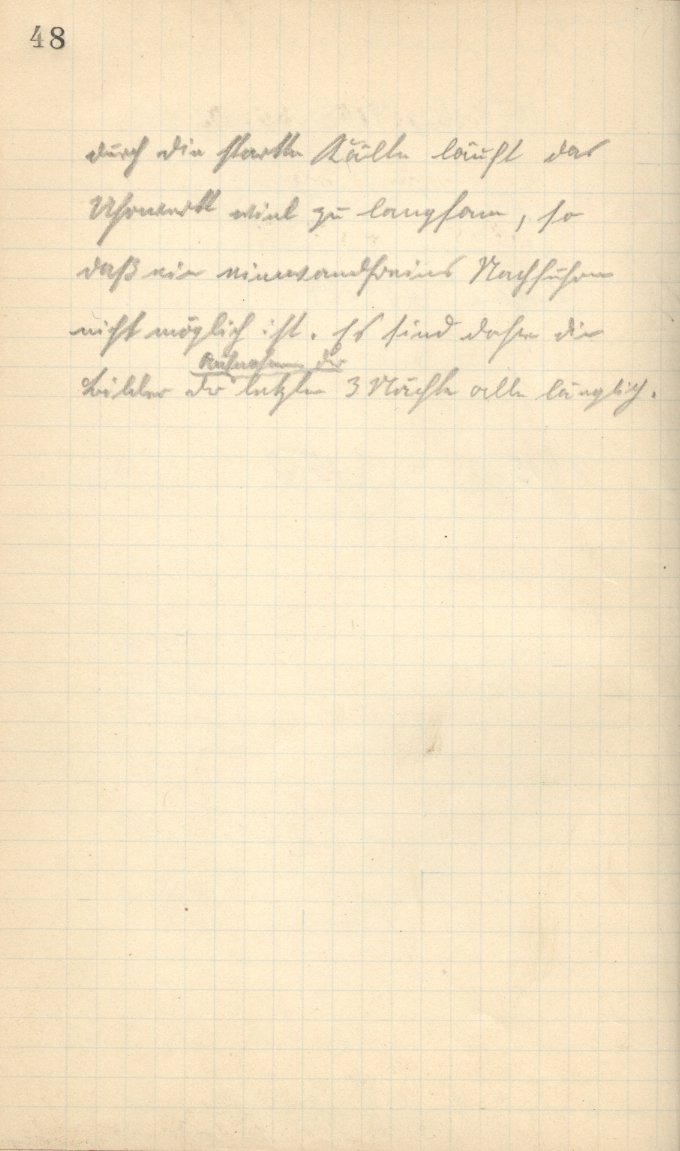 48
durch die starke Kälte läuft das
Uhrwerk viel zu langsam, so
daß ein einwandfreies Nachführen
nicht möglich ist. Es sind daher die
Aufnahmen der
Bilder der letzten 3 Nächte alle länglich.